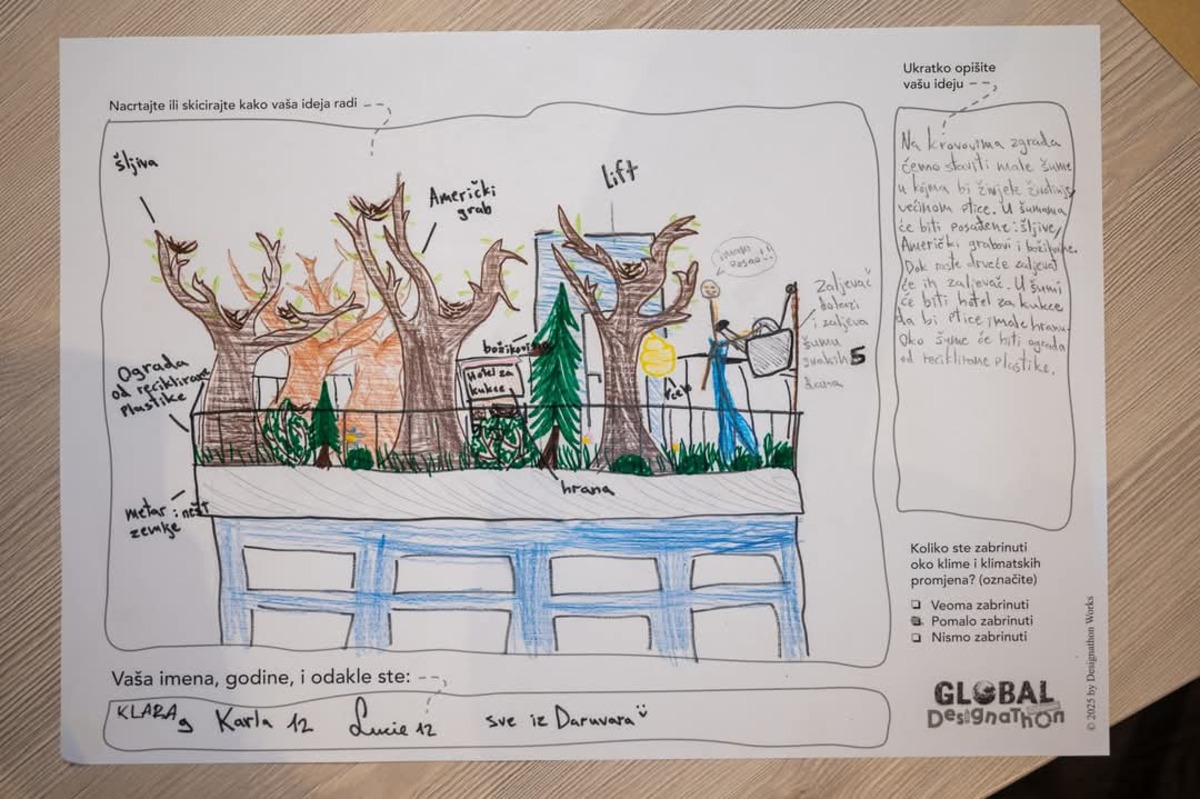 Nacrtajte ili skicirajte kako vaša ideja radi
šljiva
Američki
grab
Lift
imam
posao!!
Zaljevač
dolazi
i zaljeva
šumu
svakih 5
dana
Ograda
od reciklirane
plastike
božikovina
Hotel za
kukce
pčele
hrana
metar i nešt
zemlje
Ukratko opišite
vašu ideju
Na krovovima zgrada
ćemo staviti male šume
u kojma bi živjele životinje
većinom ptice. U šumama
će biti posađene: šljive,
Američki grabovi i božikovine.
Dok raste drveće zaljevač
će ih zaljevać. U šumi
će biti hotel za kukce
da bi ptice imale hranu.
Oko šume će biti ograda
od reciklirane plastike.
Koliko ste zabrinuti
oko klime i klimatskih
promjena? (označite)
Veoma zabrinuti
Pomalo zabrinuti
Nismo zabrinuti
Vaša imena, godine, i odakle ste:
KLARA 9 Karla 12 Lucie 12 sve iz Daruvara
GLOBAL
Designathon
© 2025 by Designathon Works